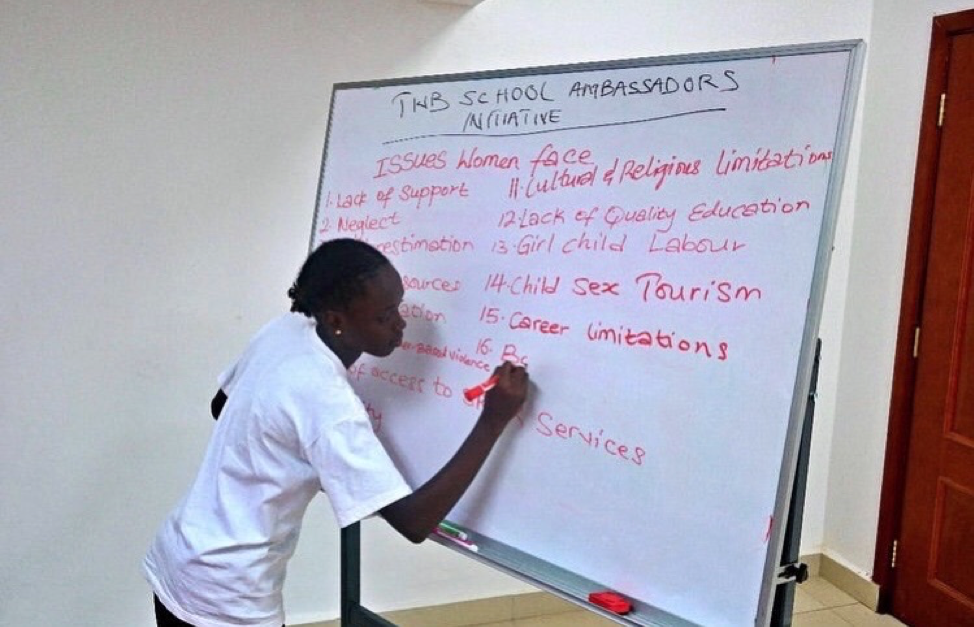 TWB SCHOOL AMBASSADORS
INITIATIVE
ISSUES Women face
1. Lack of Support
2. Neglect
restimation
sources
ation
based violence
of access to
Services
11. Cultural & Religious limitations
12. Lack of Quality Education
13. Girl child Labour
14. Child sex Tourism
15. Career limitations
16. B